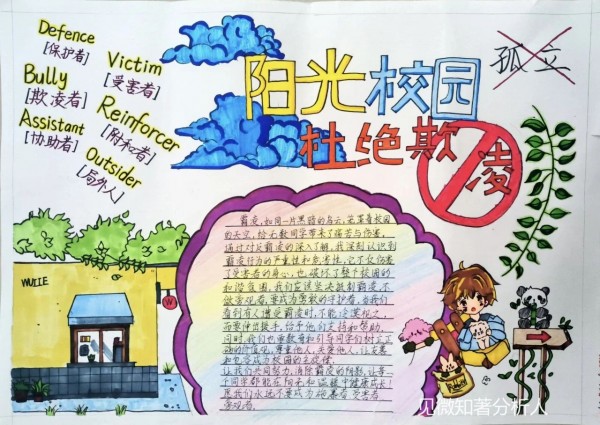 Defence
[保护者]
Victim
[受害者]
Bully
[欺凌者]
Reinforcer
[附和者]
Assistant
[协助者]
Outsider
[局外人]
阳光校园
杜绝欺凌
孤立
WUIIE
W
霸凌,如同一片黑暗的乌云,笼罩着校园
的天空,给无数同学带来了痛苦与伤害。
通过对反霸凌的深入了解,我深刻认识到
霸凌行为的严重性和危害性,它不仅伤害
了受害者的身心,也破坏了整个校园的
和谐氛围,我们应该坚决抵制霸凌,不
做旁观者,要成为勇敢的守护者,当我们
看到有人遭受霸凌时,不能冷漠视之,
而要伸出援手,给予他们支持和帮助,
同时,我们也要教育和引导同学们树立正
让我们共同努力,消除霸凌的阴影,让每一
个同学都能在阳光和温暖中健康成长!
愿我们永远不要成为施暴者 受害者
旁观者。
见微知著分析人